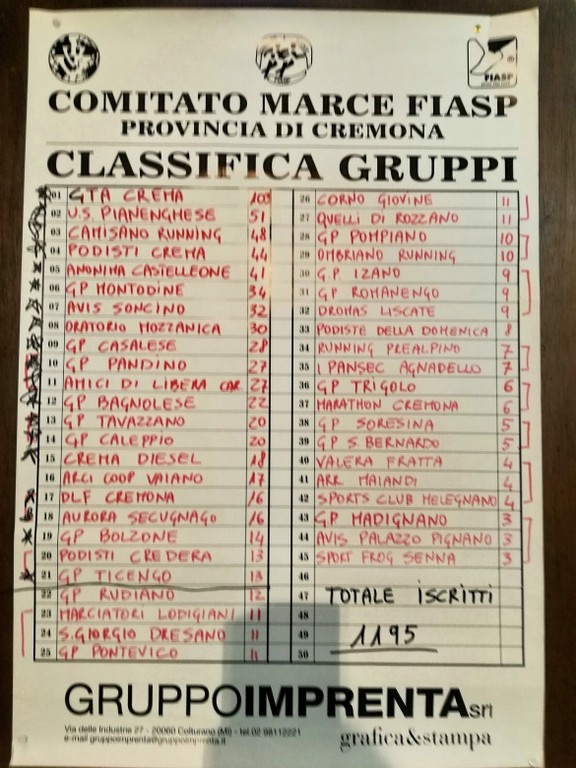 FIASP
COMITATO MARCE FIASP
PROVINCIA DI CREMONA
CLASSIFICA GRUPPI
01 GTA CREMA 103
02 U.S. PIANENGHESE 51
03 CAMISANO RUNNING 48
04 PODISTI CREMA 44
05 ANONIMA CASTELLEONE 41
06 GP MONTODINE 34
07 AVIS SONCINO 32
08 ORATORIO MOZZANICA 30
09 GP CASALESE 28
10 GP PANDINO 27
11 AMICI DI LIBERA CAR. 27
12 GP BAGNOLESE 22
13 GP TAVAZZANO 20
14 GP CALEPPIO 20
15 CREMA DIESEL 18
16 ARCI COOP VAIANO 17
17 DLF CREMONA 16
18 AURORA SECUGNAGO 16
19 GP BOLZONE 14
20 PODISTI CREDERA 13
21 GP TICENGO 13
22 GP RUDIANO 12
23 MARCIATORI LODIGIANI 11
24 S.GIORGIO DRESANO 11
25 GP PONTEVICO 11
26 CORNO GIOVINE 11
27 QUELLI DI ROZZANO 11
28 GP POMPIANO 10
29 OMBRIANO RUNNING 10
30 G.P. IZANO 9
31 GP ROMANENGO 9
32 DROMAS LISCATE 9
33 PODISTE DELLA DOMENICA 8
34 RUNNING PREALPINO 7
35 I PANSEC AGNADELLO 7
36 GP TRIGOLO 6
37 MARATHON CREMONA 6
38 GP SORESINA 5
39 GP S.BERNARDO 5
40 VALERA FRATTA 4
41 ARR MAIANDI 4
42 SPORTS CLUB MELEGNANO 4
43 GP MADIGNANO 3
44 AVIS PALAZZO PIGNANO 3
45 SPORT FROG SENNA 3
46
47 TOTALE ISCRITTI
48
49 1195
50
GRUPPOIMPRENTA srl
Via delle Industrie 27 - 20060 Colturano (MI) - tel.02 98112221
e-mail gruppoimprenta@gruppoimprenta.it
grafica&stampa